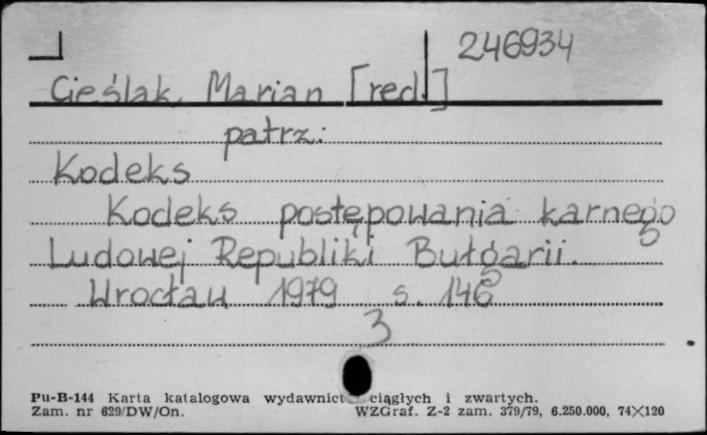 246934
Cieślak, Marian [red.]
patrz:
Kodeks
Kodeks postępowania karnego
Ludowej Republiki Bułgarii.
Wrocław 1979 s. 146
3
Pu-B-144 Karta katalogowa wydawnict ciągłych i zwartych.
Zam. nr 629/DW/On. WZGraf. Z-2 zam. 379/79, 6.250.000, 74×120